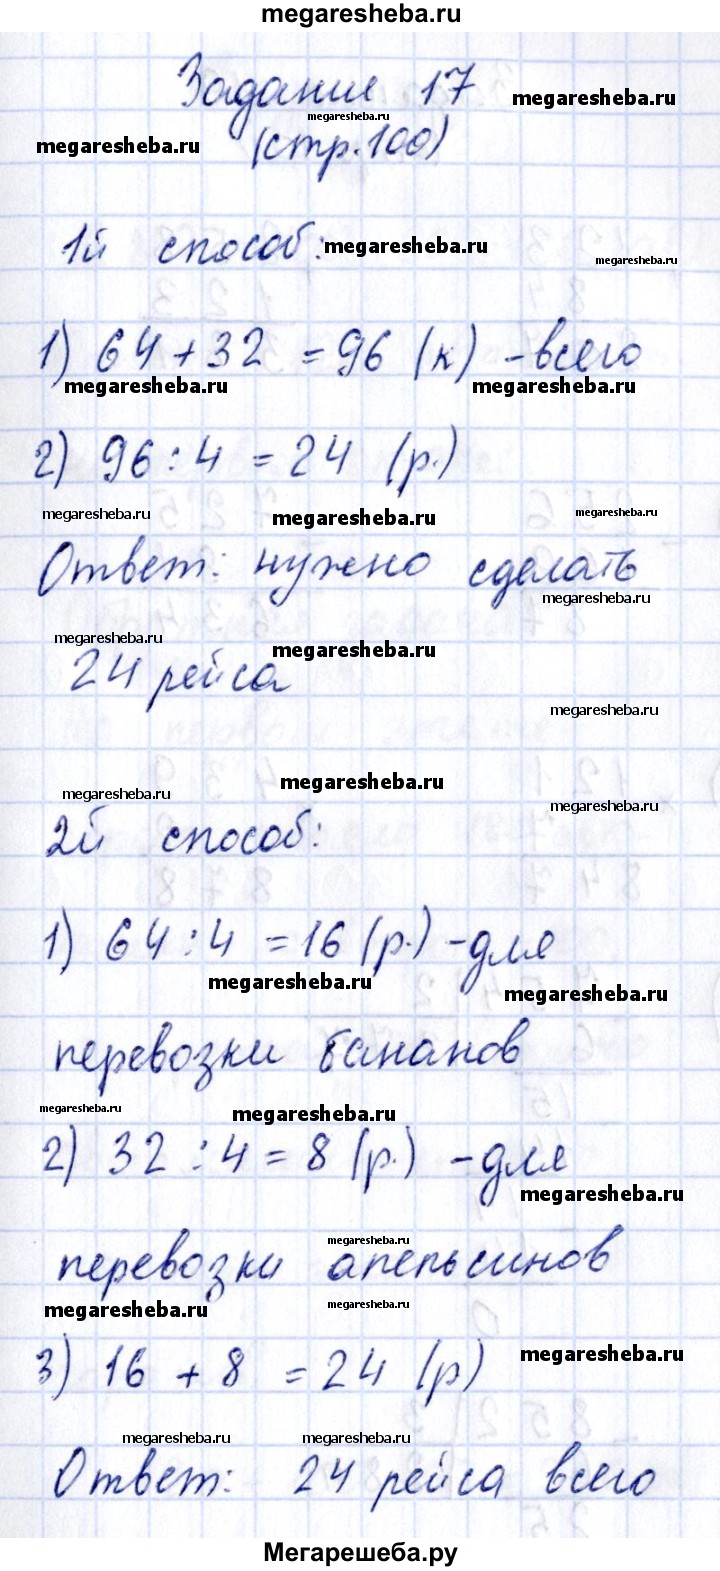 megaresheba.ru
Задание 17
megaresheba.ru
megaresheba.ru
megaresheba.ru
(стр.100)
1й способ:
megaresheba.ru
megaresheba.ru
1) 64 + 32 = 96 (к) - всего
megaresheba.ru megaresheba.ru
2) 96 : 4 = 24 (р.)
megaresheba.ru megaresheba.ru megaresheba.ru
Ответ: нужно сделать
megaresheba.ru
megaresheba.ru megaresheba.ru
24 рейса
megaresheba.ru
megaresheba.ru megaresheba.ru
megaresheba.ru
2й способ:
1) 64 : 4 = 16 (р.) - для
megaresheba.ru megaresheba.ru
перевозки бананов
megaresheba.ru megaresheba.ru
2) 32 : 4 = 8 (р.) - для
megaresheba.ru
megaresheba.ru
перевозки апельсинов
megaresheba.ru megaresheba.ru
3) 16 + 8 = 24 (р)
megaresheba.ru
megaresheba.ru megaresheba.ru
Ответ: 24 рейса всего
Мегарешеба.ру